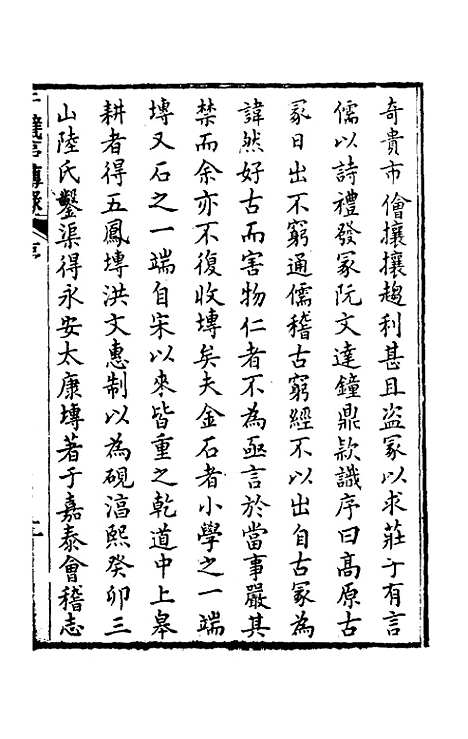 奇貴市儈攘攘趨利甚且盜冢以求莊子有言
儒以詩禮發冢阮文達鐘鼎欵識序曰高原古
冢日出不窮通儒稽古窮經不以出自古冢為
諱然好古而害物仁者不為亟言於當事嚴其
禁而余亦不復收塼矣夫金石者小學之一端
塼又石之一端自宋以來皆重之乾道中上皋
耕者得五鳳塼洪文惠制以為硯淳熙癸卯三
山陸氏鑿渠得永安太康塼著于嘉泰會稽志
千甓亭塼錄 序